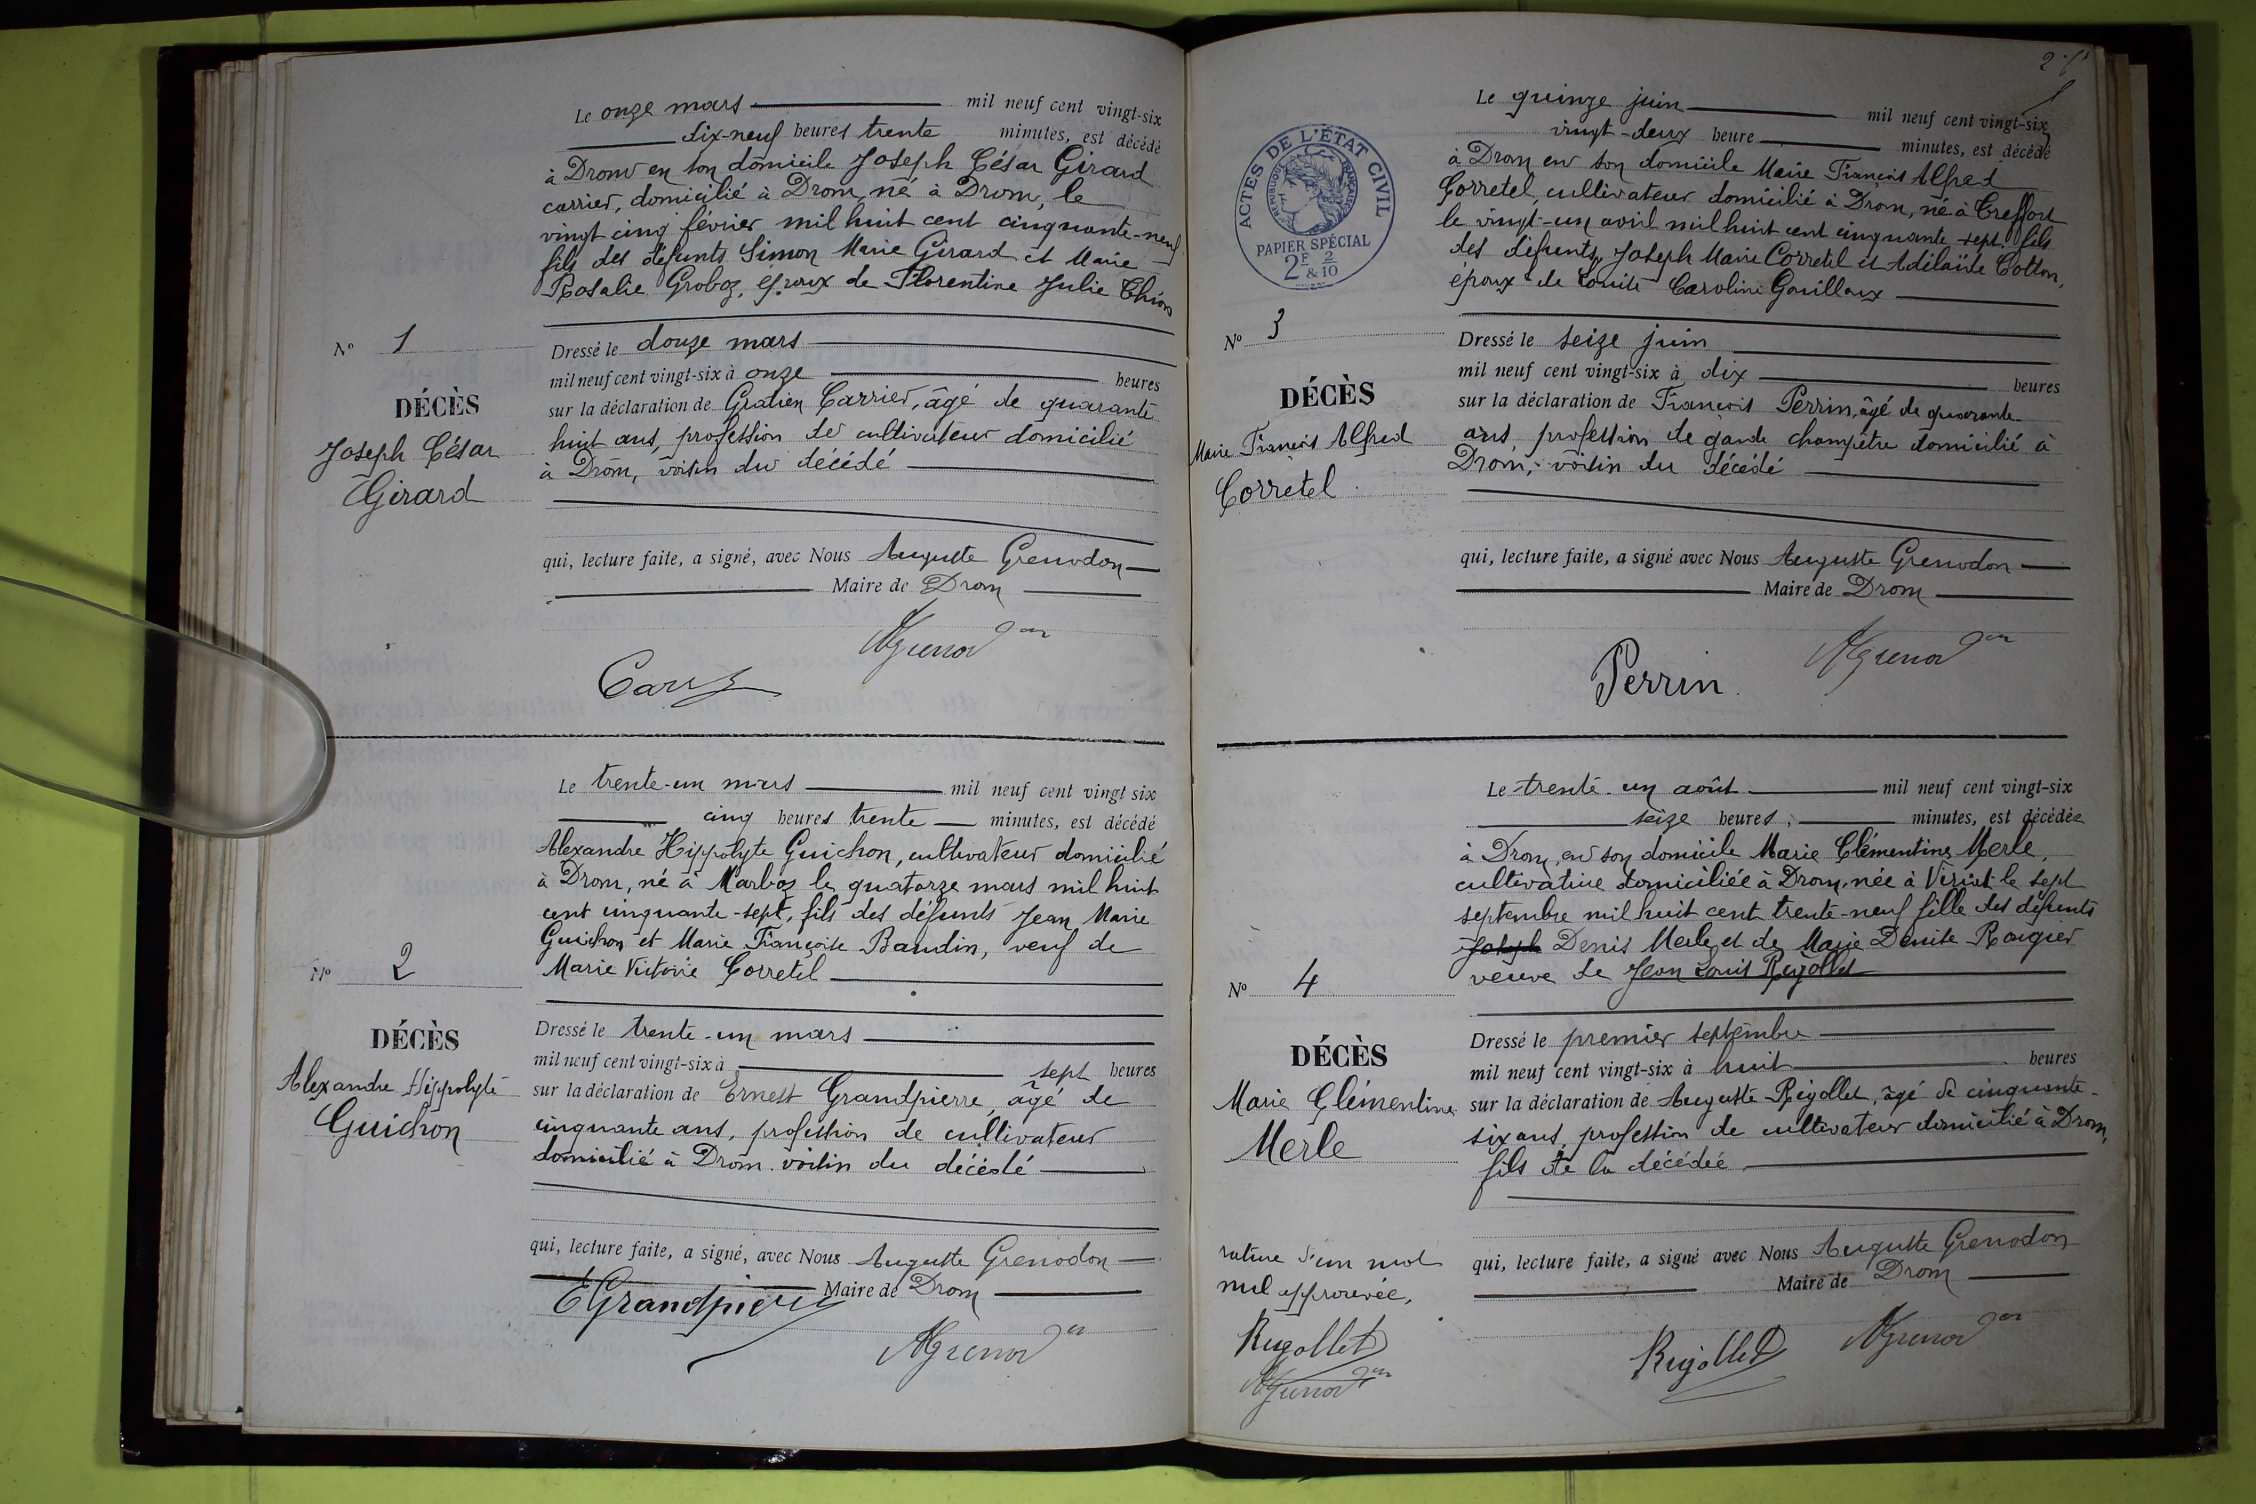 Le onze mars mil neuf cent vingt-six
dix-neuf heures trente minutes, est décédé
à Drom en son domicile Joseph César Girard
carrier, domicilié à Drom, né à Drom, le
vingt cinq février mil huit cent cinquante-neuf
fils des défunts Simon Marie Girard et Marie
Rosalie Groboz, époux de Florentine Julie
Nº 1
DÉCÈS
Joseph César
Girard
Dressé le douze mars
mil neuf cent vingt-six à onze heures
sur la déclaration de Gratien Carrier, âgé de quarante
huit ans, profession de cultivateur domicilié
à Drom, voisin du décédé
qui, lecture faite, a signé, avec Nous Auguste Grenodon
Maire de Drom
Le trente-un mars mil neuf cent vingt six
cinq heures trente minutes, est décédé
Alexandre Hippolyte Guichon, cultivateur domicilié
à Drom, né à Marboz le quatorze mars mil huit
cent cinquante-sept, fils des défunts Jean Marie
Guichon et Marie Françoise Baudin, veuf de
Marie Victorie Corretel
Nº 2
DÉCÈS
Alexandre Hippolyte
Guichon
Dressé le trente-un mars
mil neuf cent vingt-six à sept heures
sur la déclaration de Ernest Grandpierre, âgé de
cinquante ans, profession de cultivateur
domicilié à Drom. voisin du décédé
qui, lecture faite, a signé, avec Nous Auguste Grenodon
Maire de Drom
EGrandpierre
AGrenodon
ACTES DE L'ÉTAT CIVIL
RÉPUBLIQUE FRANÇAISE
PAPIER SPÉCIAL
2F & 2/10
Le quinze juin mil neuf cent vingt-six
vingt-deux heure minutes, est décédé
à Drom en son domicile Marie François Alfred
Corretel, cultivateur domicilié à Drom, né à Treffort
le vingt-un avril mil huit cent cinquante-sept. fils
des défunts, Joseph Marie Corretel et Adélaïde Cotton,
époux de Louise Caroline Gouilloux
Nº 3
DÉCÈS
Marie François Alfred
Corretel
Dressé le seize juin
mil neuf cent vingt-six à dix heures
sur la déclaration de François Perrin, âgé de quarante
ans, profession de garde champêtre domicilié à
Drom, voisin du décédé
qui, lecture faite, a signé avec Nous Auguste Grenodon
Maire de Drom
Perrin
AGrenodon
Le trente-un août mil neuf cent vingt-six
seize heures, minutes, est décédée
à Drom, en son domicile Marie Clémentine Merle,
cultivatrice domiciliée à Drom, née à Viriat le sept
septembre mil huit cent trente-neuf fille des défunts
Joseph Denis Merle et de Marie Denise
veuve de Jean Louis Rigollet
Nº 4
DÉCÈS
Marie Clémentine
Merle
Dressé le premier septembre
mil neuf cent vingt-six à huit heures
sur la déclaration de Auguste Rigollet, âgé de cinquante-
six ans, profession de cultivateur domicilié à Drom,
fils de la décédée
rature d'un mot
nul approuvée,
Rigollet
AGrenodon
qui, lecture faite, a signé avec Nous Auguste Grenodon
Maire de Drom
Rigollet
AGrenodon